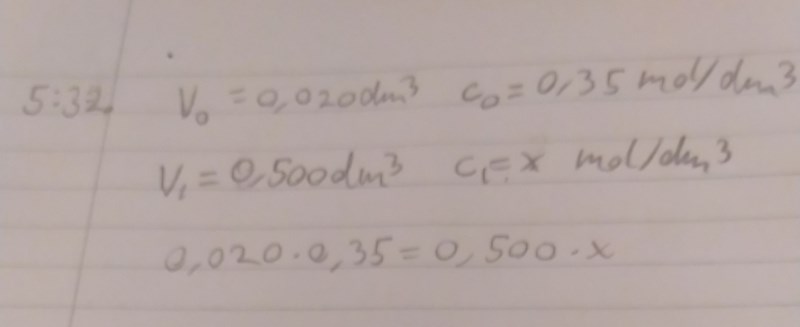 5:32. V₀ = 0,020dm³ c₀ = 0,35 mol/dm³
V₁ = 0,500dm³ c₁ = x mol/dm³
0,020 · 0,35 = 0,500 · x